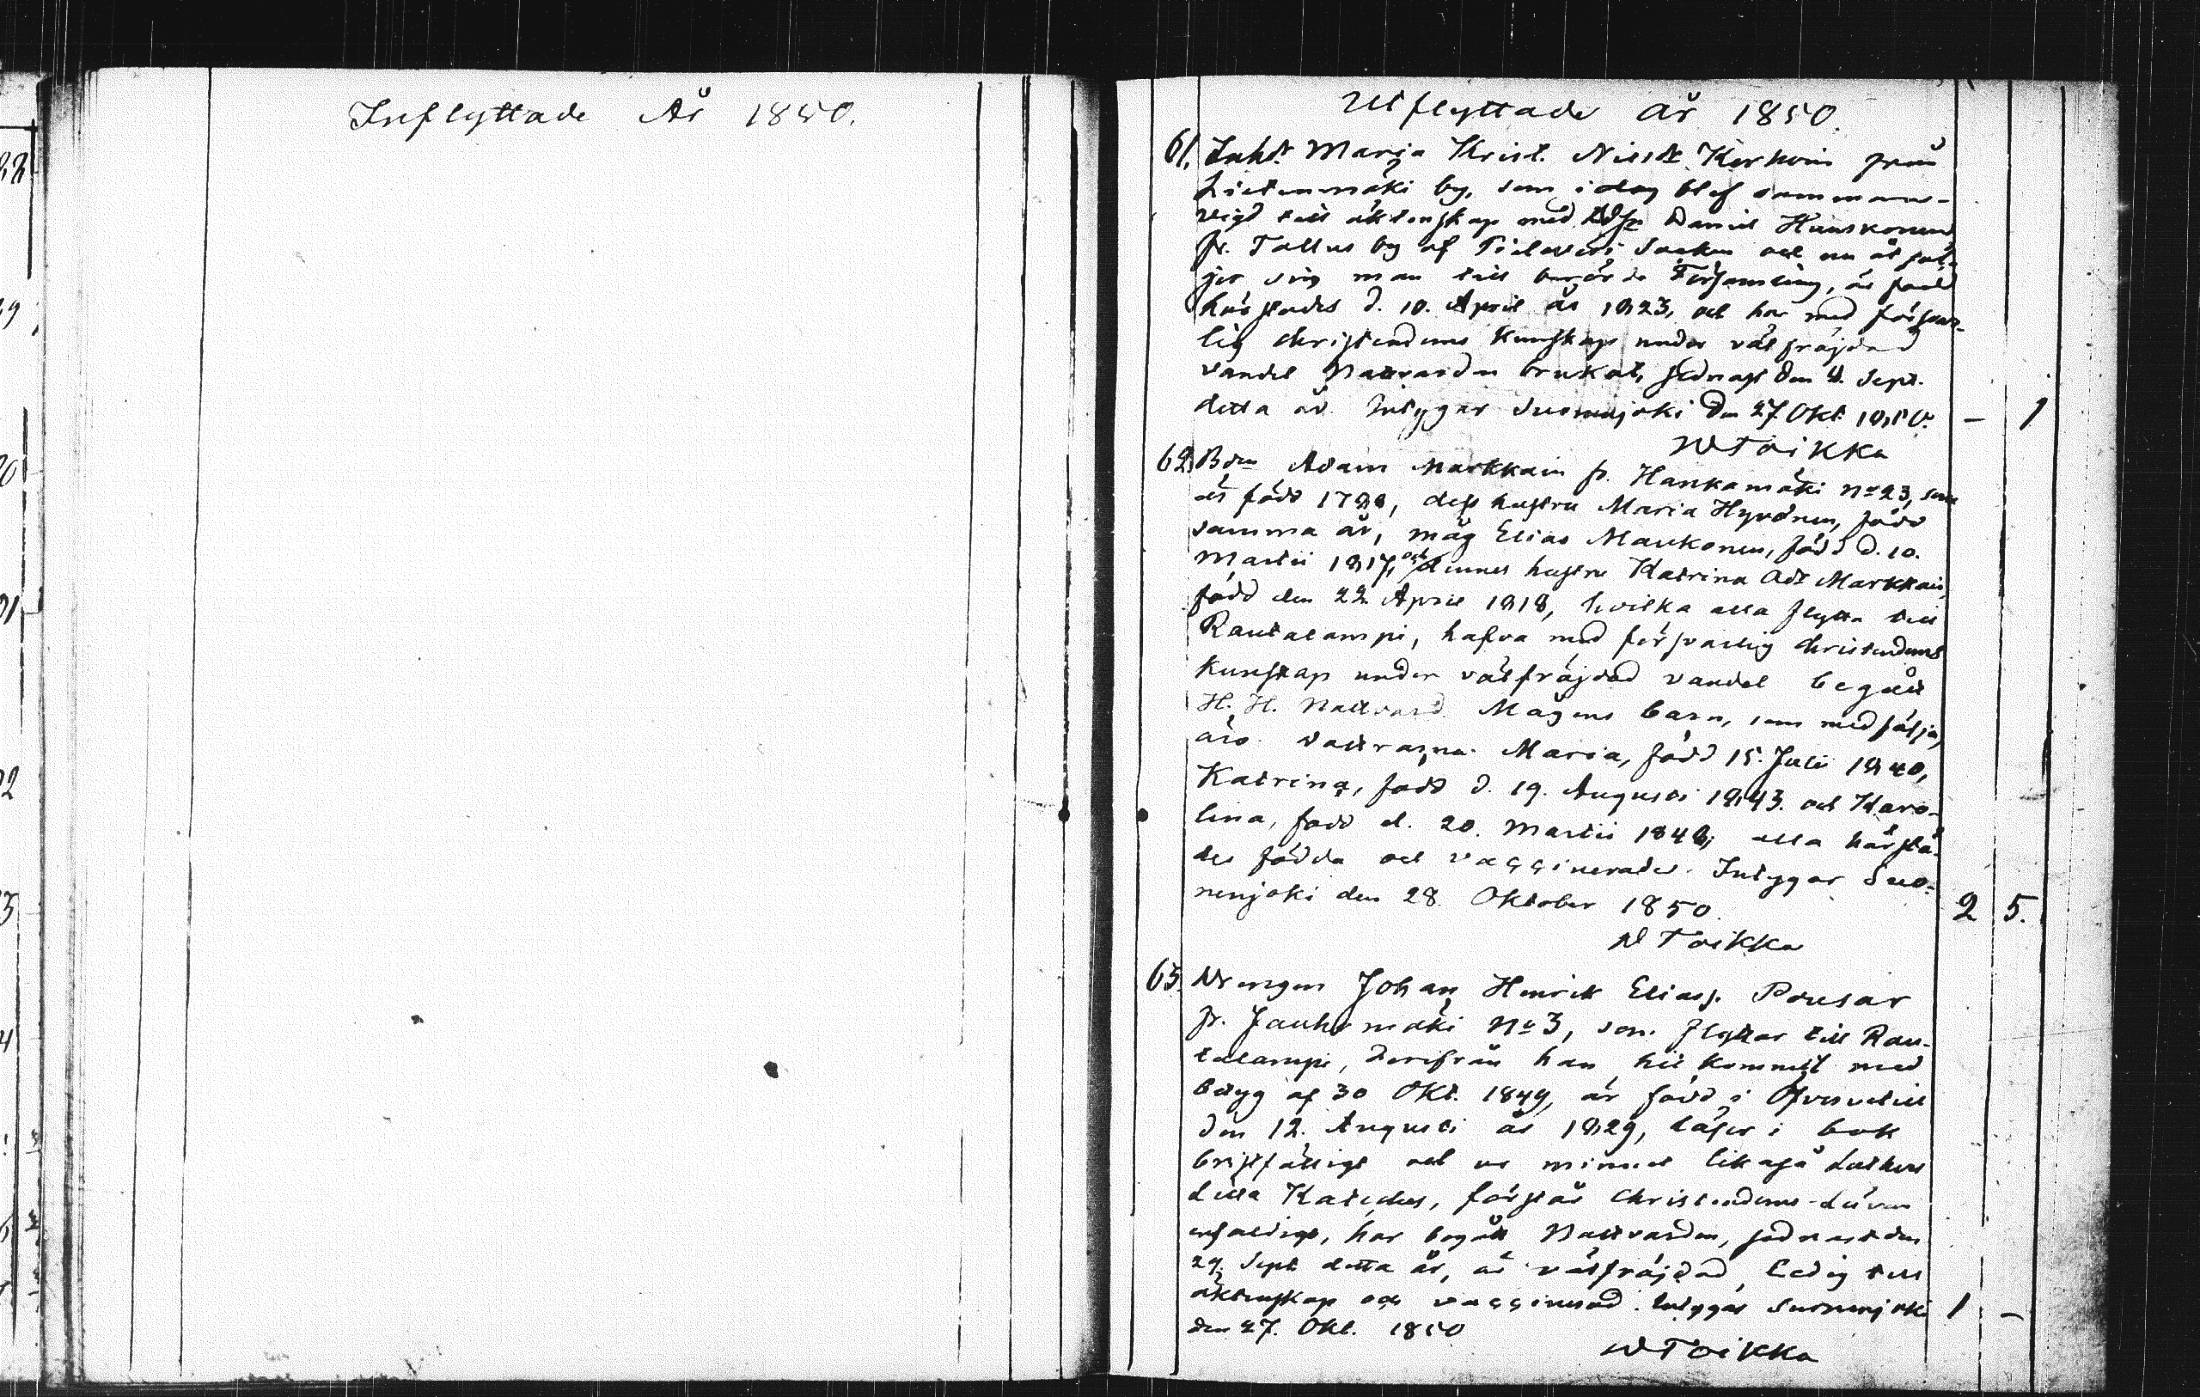 Inflyttade År 1850.
Utflyttade år 1850.
61. Inhdr Marja Krist. Nilsdr Korhoin från
Lietenmäki by, som i dag blef samman-
vigd till äktenskap med Daniel Hänskonen
fr. Tallus by af Pielavesi Socken och nu åtföl-
jer sin man till berörde Församling, är född
härstädes d. 10. April år 1823, och har med försvar-
lig christendoms kunskap under välfräjdad
vandel Nattvarden brukat, sednast den 4. Sept.
detta år. Intygar Suonnejoki den 27 Okt 1850. – 1
W Toikka
62. Bdn Adam Markkain fr. Hankamäki No 23, som
är född 1798, dess hustru Maria Hyvönen, född
samma år, måg Elias Maukonen, född d. 10.
Martii 1817, och dennes hustru Katrina Adr Markkain,
född den 22 April 1818, hvilka alla flytta till
Rautalampi, hafva med försvarlig christendoms
kunskap under välfräjdad vandel begått
H. H. Nattvard. Mågens barn, som medfölja,
äro döttrarna: Maria, född 15. Julii 1840,
Katrina, född d. 19. Augusti 1843. och Karo-
lina, född d. 20. Martii 1848, alla härstä-
des födda och vaccinerade. Intygar Suo-
nenjoki den 28 Oktober 1850. 2 5.
W Toikka
63. Drengen Johan Henrik Eliass. Pousar
fr. Jauhomäki No 3, som flyttar till Rau-
talampi, derifrån han hit kommit med
betyg af 30 Okt. 1849, är född i
den 12. Augusti år 1829, läser i bok
bristfälligt och ur minnet likaså Lutheri
Lilla Kateches, förstår Christendoms-Läran
enfaldigt, har begått Nattvarden, sednast den
29. Sept detta år, är välfräjdad, ledig till
äktenskap och vaccinerad. Intygar Suonenjoki 1 –
den 27. Okt. 1850
W Toikka